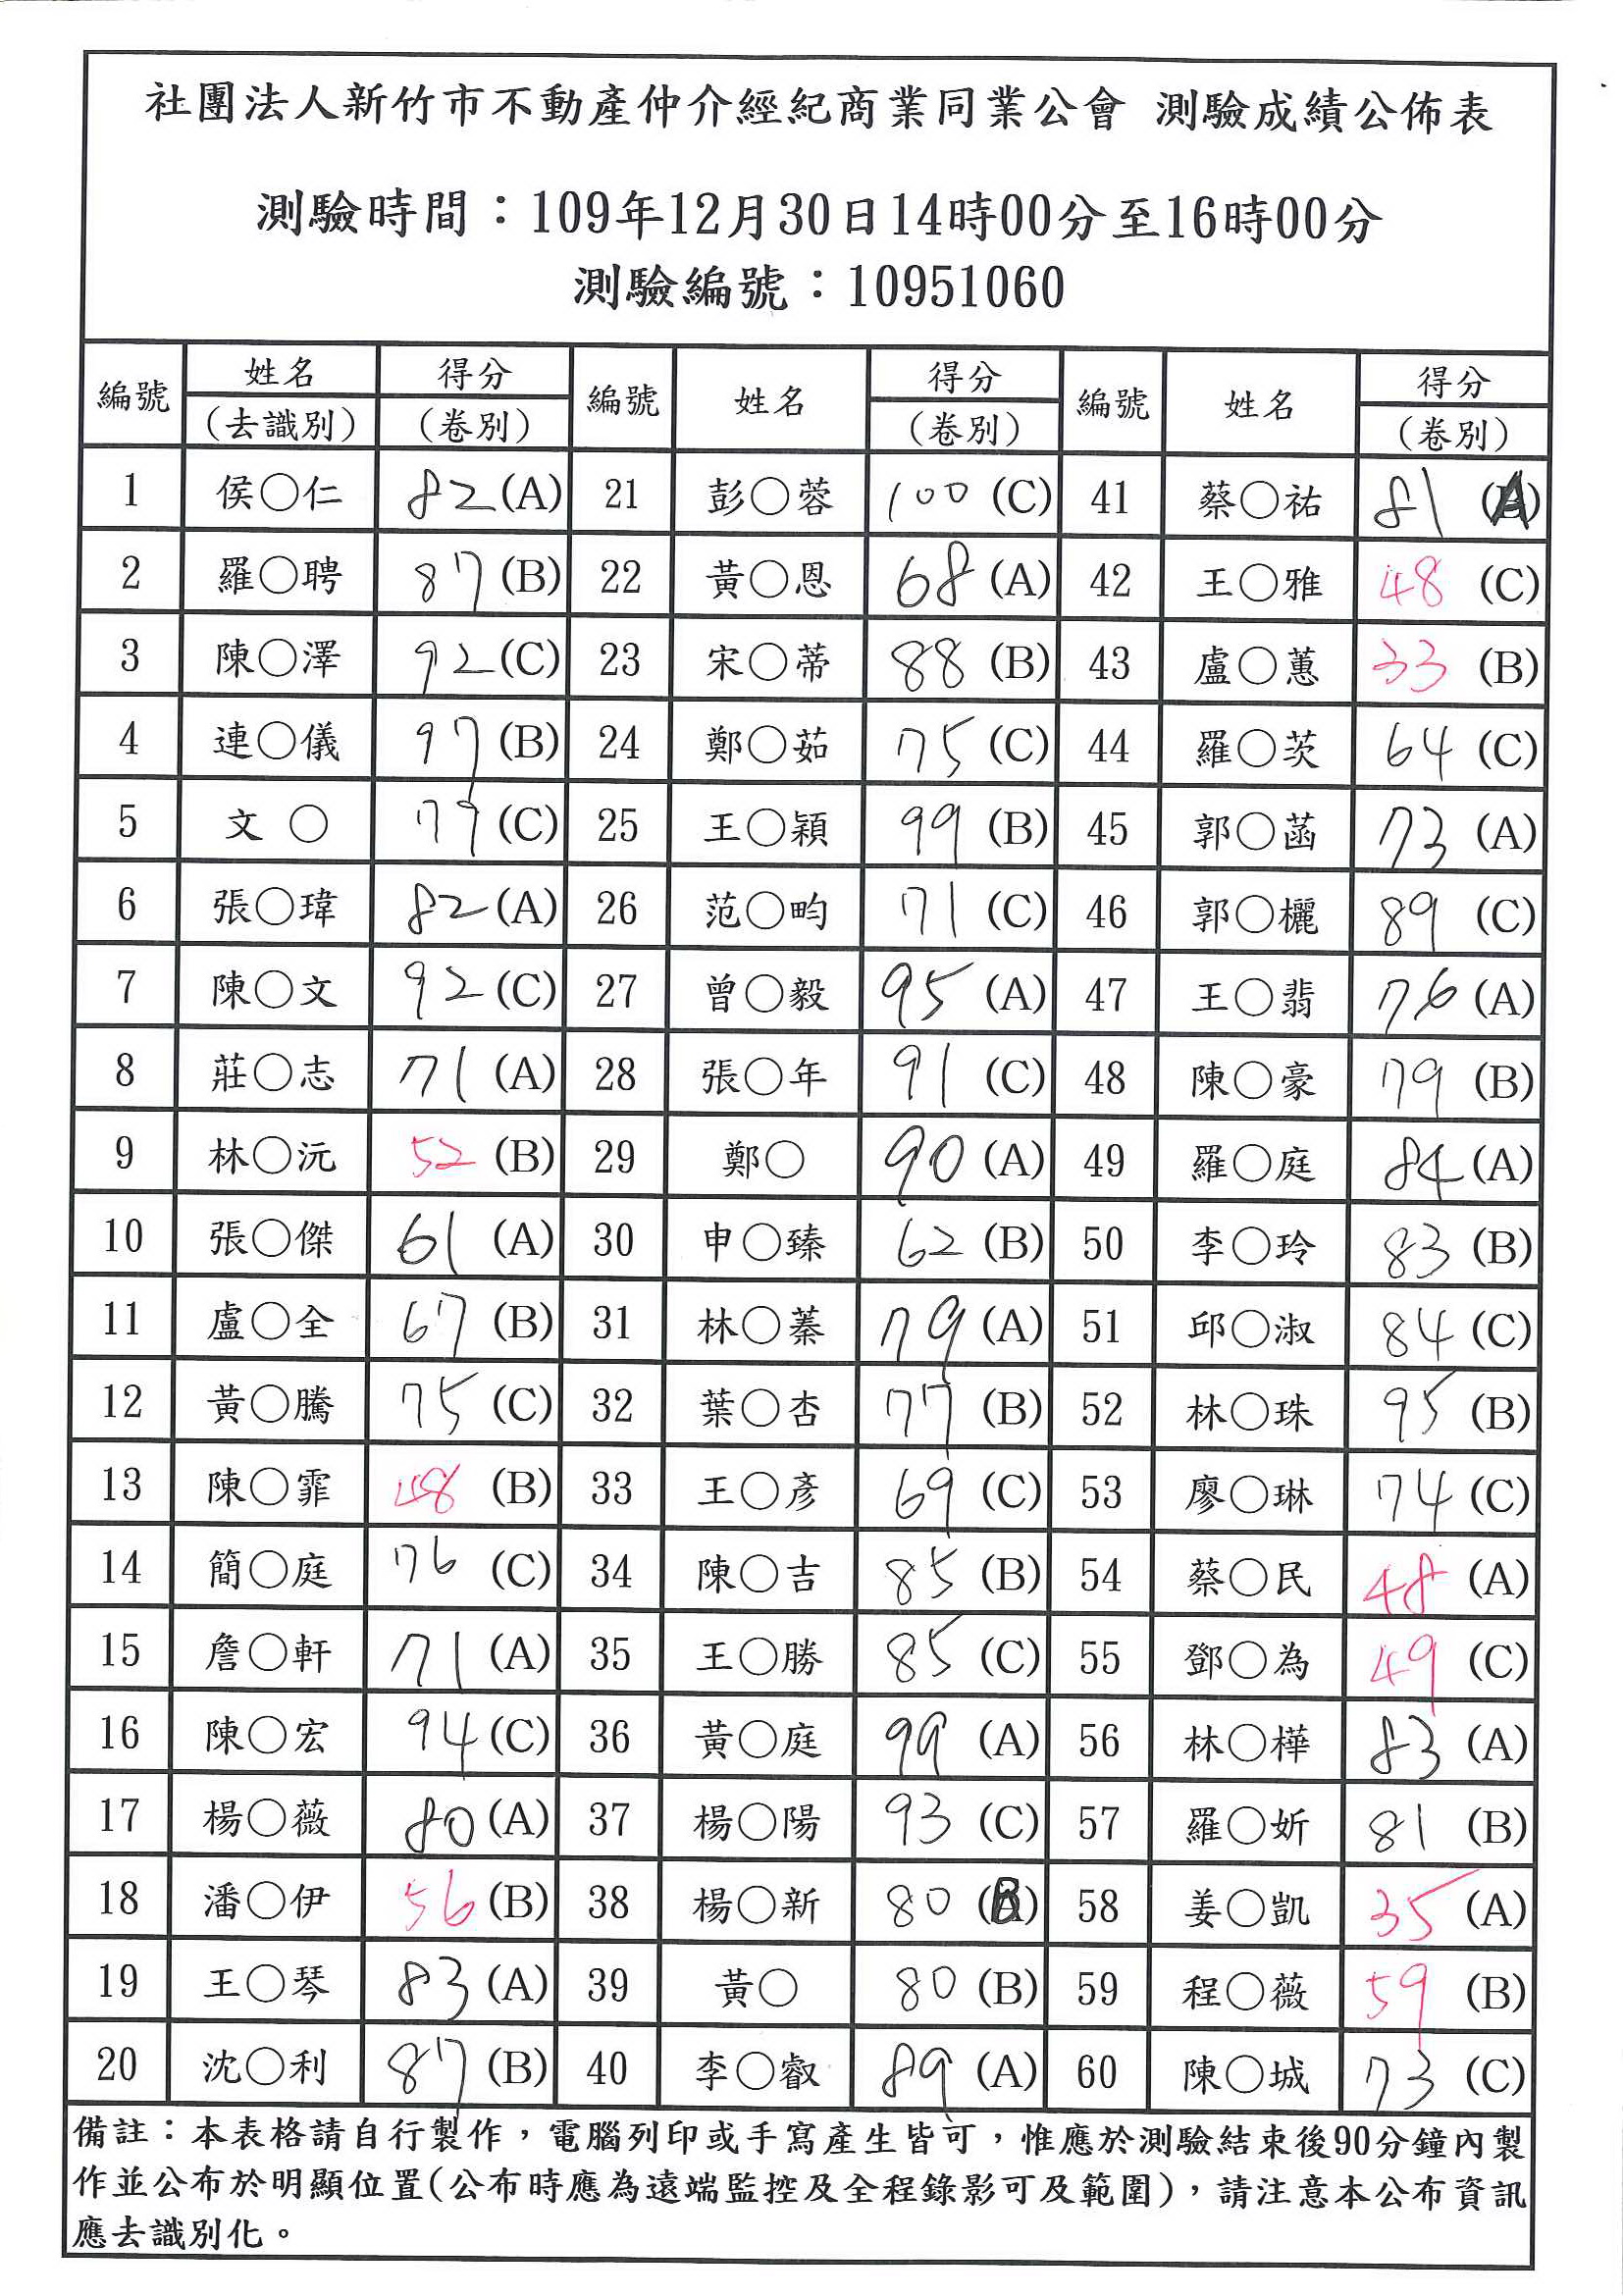 社團法人新竹市不動產仲介經紀商業同業公會 測驗成績公佈表
測驗時間：109年12月30日14時00分至16時00分
測驗編號：10951060
編號 姓名 得分 編號 姓名 得分 編號 姓名 得分
(去識別) (卷別) (卷別) (卷別)
1 侯〇仁 82 (A) 21 彭〇蓉 100 (C) 41 蔡〇祐 81 (A)
2 羅〇聘 87 (B) 22 黃〇恩 68 (A) 42 王〇雅 48 (C)
3 陳〇澤 92 (C) 23 宋〇蒂 88 (B) 43 盧〇蕙 33 (B)
4 連〇儀 97 (B) 24 鄭〇茹 75 (C) 44 羅〇茨 64 (C)
5 文 〇 79 (C) 25 王〇穎 99 (B) 45 郭〇菡 73 (A)
6 張〇瑋 82 (A) 26 范〇畇 71 (C) 46 郭〇欐 89 (C)
7 陳〇文 92 (C) 27 曾〇毅 95 (A) 47 王〇翡 76 (A)
8 莊〇志 71 (A) 28 張〇年 91 (C) 48 陳〇豪 79 (B)
9 林〇沅 52 (B) 29 鄭〇 90 (A) 49 羅〇庭 84 (A)
10 張〇傑 61 (A) 30 申〇臻 62 (B) 50 李〇玲 83 (B)
11 盧〇全 67 (B) 31 林〇蓁 79 (A) 51 邱〇淑 84 (C)
12 黃〇騰 75 (C) 32 葉〇杏 77 (B) 52 林〇珠 95 (B)
13 陳〇霏 48 (B) 33 王〇彥 69 (C) 53 廖〇琳 74 (C)
14 簡〇庭 76 (C) 34 陳〇吉 85 (B) 54 蔡〇民 48 (A)
15 詹〇軒 71 (A) 35 王〇勝 85 (C) 55 鄧〇為 49 (C)
16 陳〇宏 94 (C) 36 黃〇庭 99 (A) 56 林〇樺 83 (A)
17 楊〇薇 80 (A) 37 楊〇陽 93 (C) 57 羅〇妡 81 (B)
18 潘〇伊 56 (B) 38 楊〇新 80 (B) 58 姜〇凱 35 (A)
19 王〇琴 83 (A) 39 黃〇 80 (B) 59 程〇薇 59 (B)
20 沈〇利 87 (B) 40 李〇叡 89 (A) 60 陳〇城 73 (C)
備註：本表格請自行製作，電腦列印或手寫產生皆可，惟應於測驗結束後90分鐘內製
作並公布於明顯位置(公布時應為遠端監控及全程錄影可及範圍)，請注意本公布資訊
應去識別化。